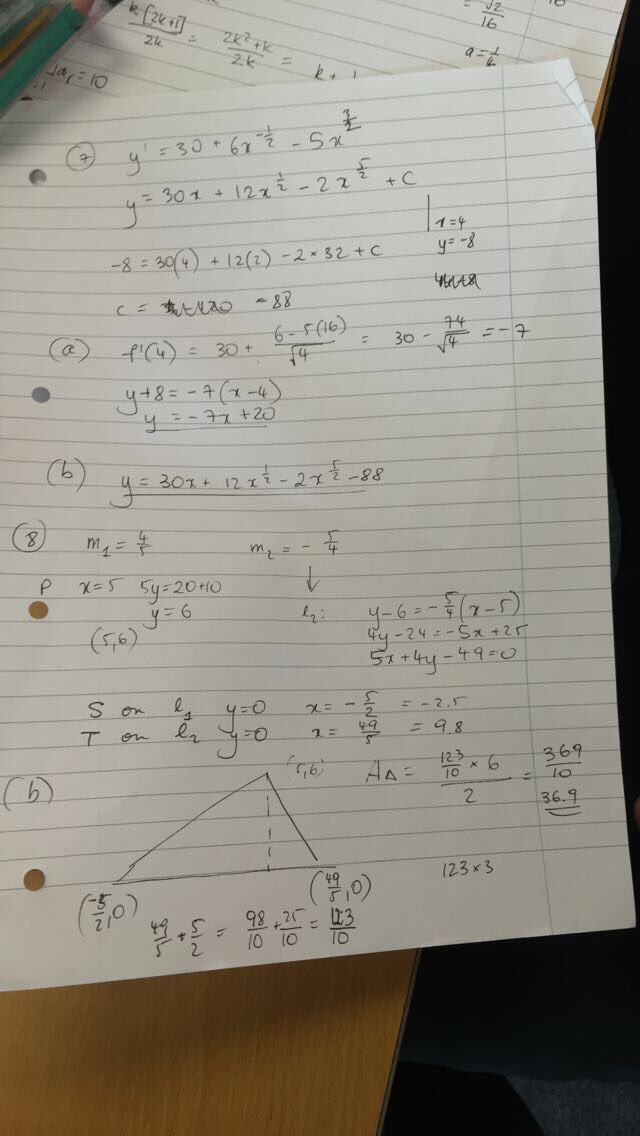 k[2k+1]/2k = (2k²+k)/2k =
k + 1
= √2/16
a = 1/4
= 10
⑦ y' = 30 + 6x^(-1/2) - 5x^(3/2)
y = 30x + 12x^(1/2) - 2x^(5/2) + C
x = 4
y = -8
-8 = 30(4) + 12(2) - 2×32 + C
C = -88
(a) f'(4) = 30 + (6-5(16))/√4 = 30 - 74/√4 = -7
y+8 = -7(x-4)
y = -7x+20
(b) y = 30x + 12x^(1/2) - 2x^(5/2) - 88
⑧ m₁ = 4/5 m₂ = - 5/4
P x=5 5y=20+10
y = 6
(5,6)
↓
l₂: y-6 = -5/4(x-5)
4y-24 = -5x+25
5x+4y-49=0
S on l₁ y=0 x = -5/2 = -2.5
T on l₂ y=0 x = 49/5 = 9.8
(b) (5,6) A△ = (123/10 × 6)/2 = 369/10
36.9
123×3
(-5/2, 0) (49/5, 0)
49/5 + 5/2 = 98/10 + 25/10 = 123/10